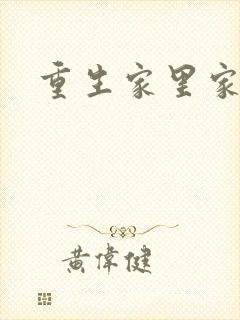 重生家里家
黄偉健